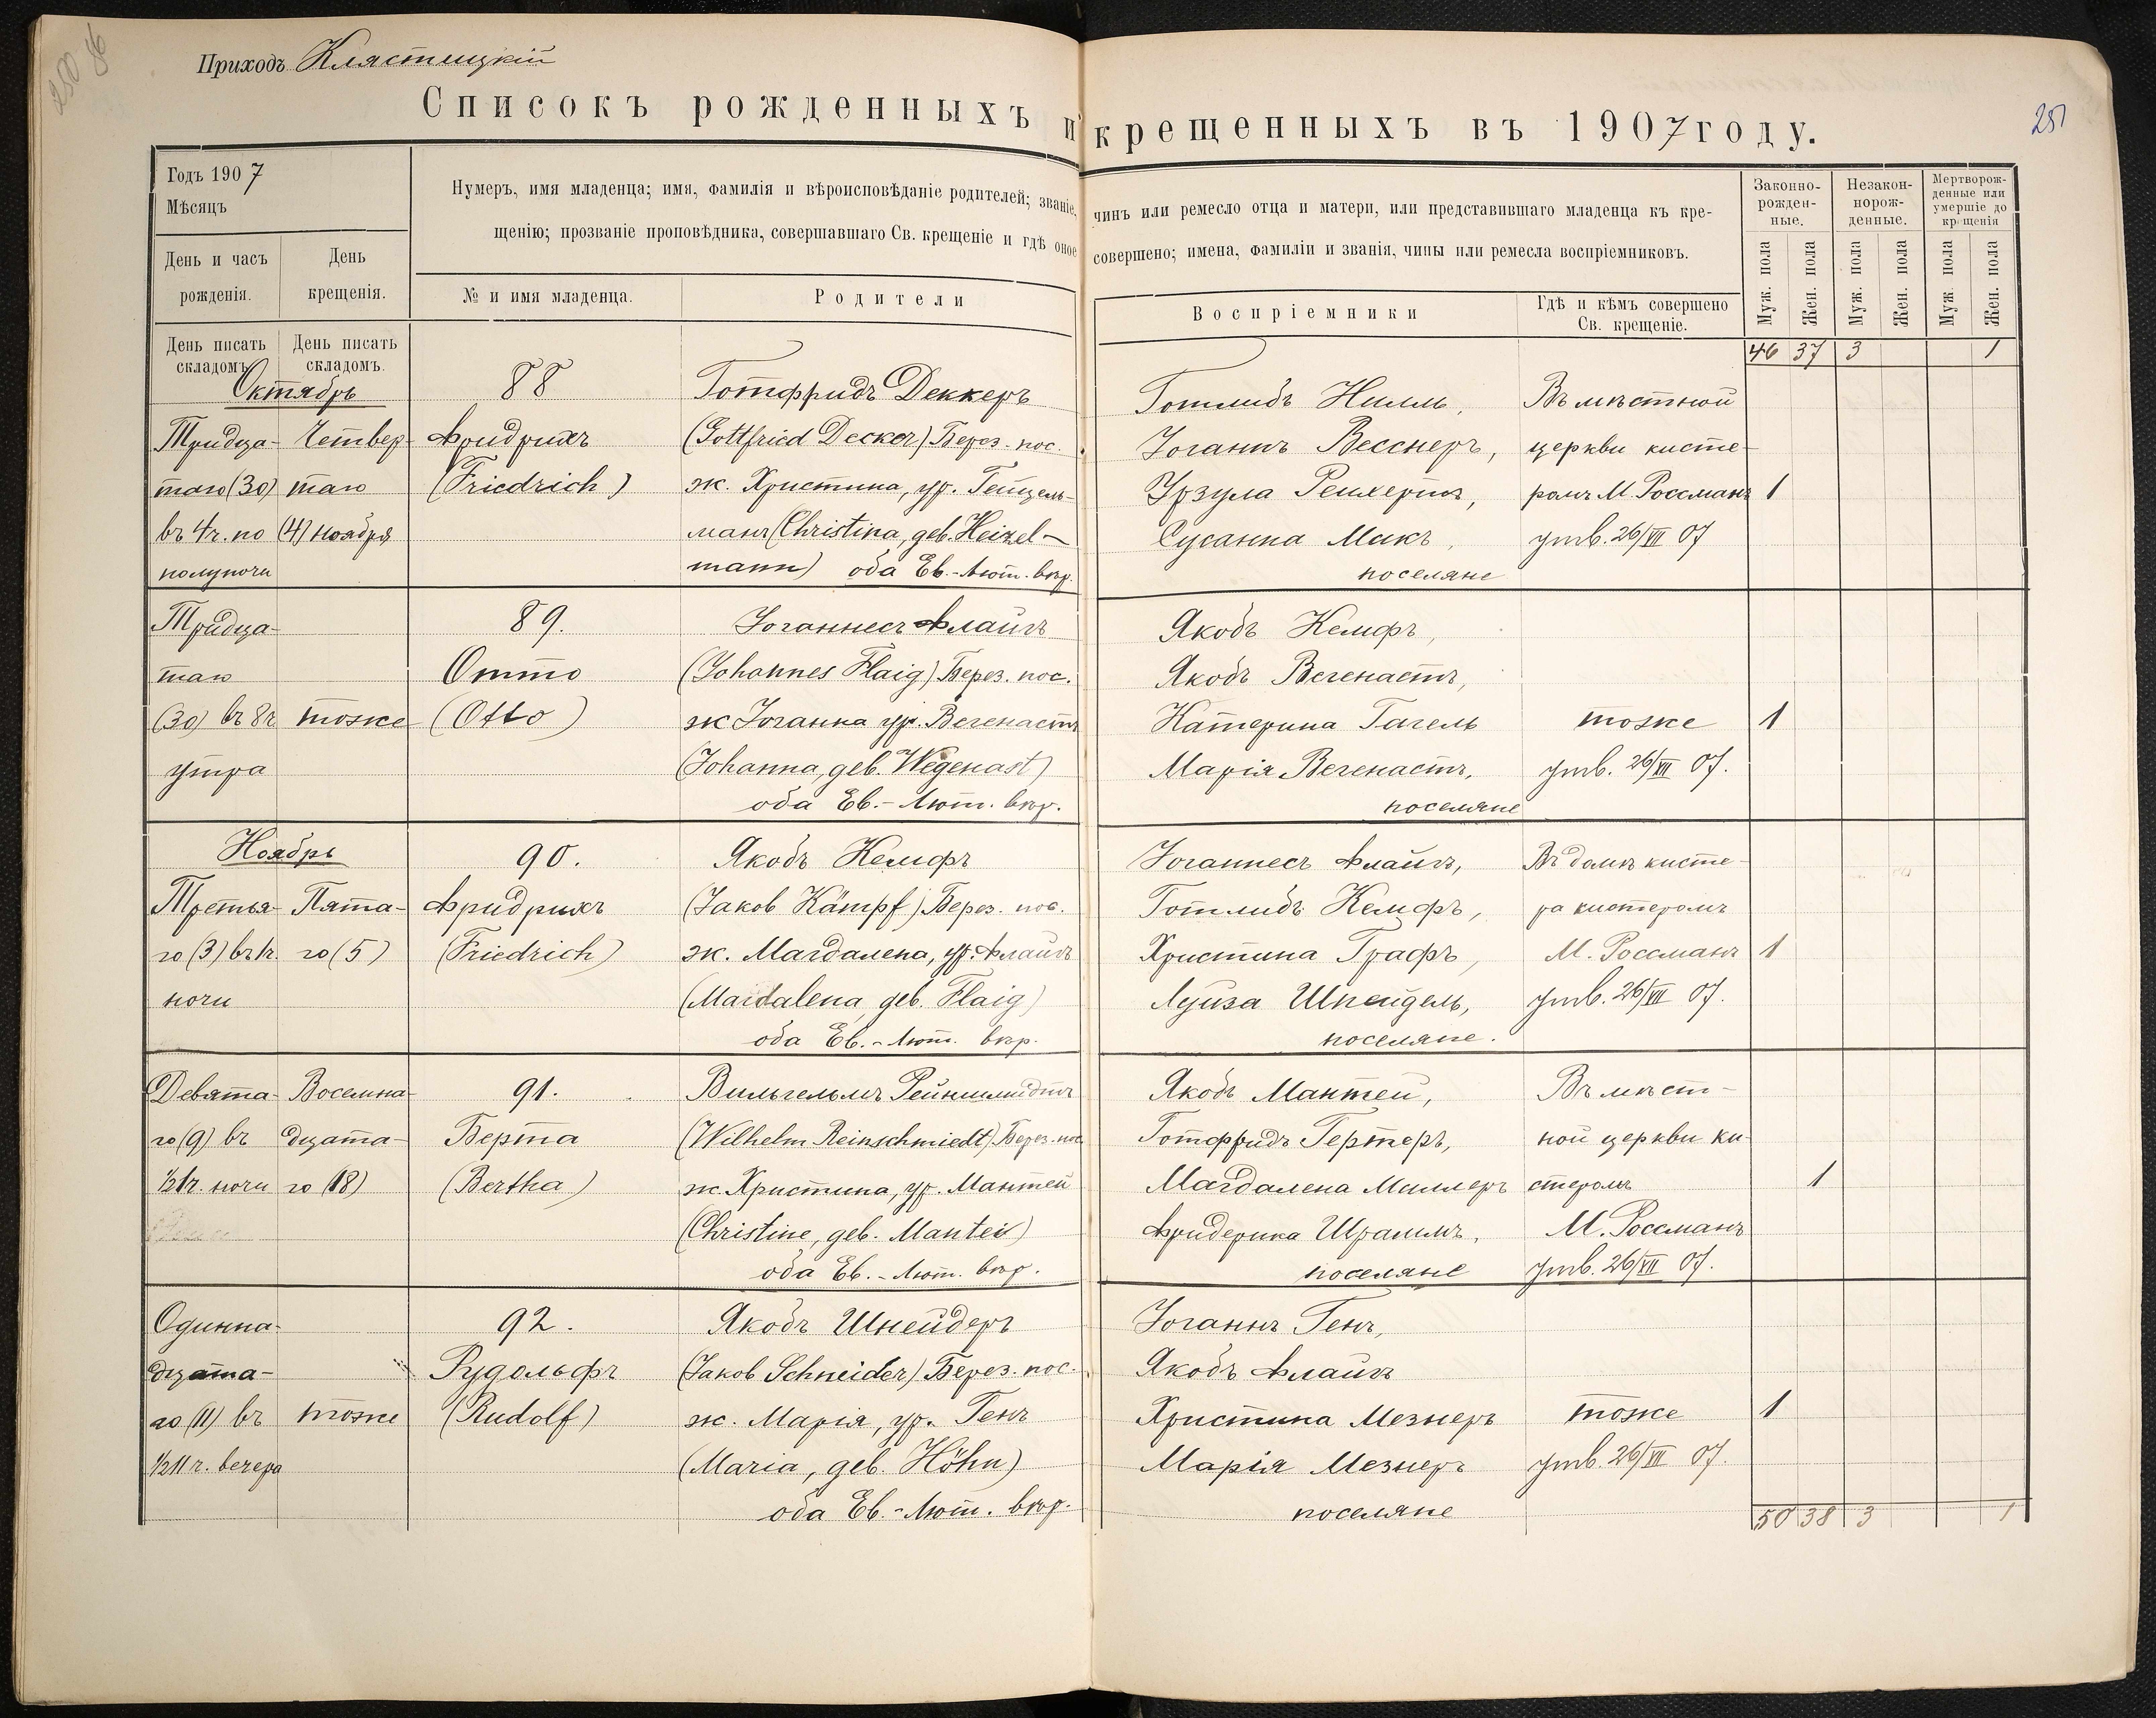 250 86
Приходъ Клястицкій
Списокъ рожденныхъ и крещенныхъ въ 1907 году.
251
Годъ 1907
Мѣсяцъ
День и часъ рожденія.
День крещенія.
Нумеръ, имя младенца; имя, фамилія и вѣроисповѣданіе родителей; званіе, чинъ или ремесло отца и матери, или представившаго младенца къ кре-
щенію; прозваніе проповѣдника, совершавшаго Св. крещеніе и гдѣ оное совершено; имена, фамиліи и званія, чины или ремесла воспріемниковъ.
№ и имя младенца.
Родители
Воспріемники
Гдѣ и кѣмъ совершено
Св. крещеніе.
Законно-
рожден-
ные.
Незакон-
норож-
денные.
Мертворож-
денные или
умершіе до
крещенія
Муж. пола
Жен. пола
Муж. пола
Жен. пола
Муж. пола
Жен. пола
День писать
складомъ
День писать
складомъ.
46 37 3 1
Октябрь
Тридца-
таго (30)
въ 4 ч. по
полуночи
Четвер-
таго
(4) ноября
88
Фридрихъ
(Friedrich)
Готфридъ Деккеръ
(Gottfried Decker) Берез. пос.
ж. Христина, ур. Гейцель-
манъ (Christina, geb. Heizel-
mann) оба Ев.-Лют. вѣр.
Готлибъ Нилль,
Іоганнъ Весснеръ,
Урзула Рейхертъ,
Сусанна Макъ,
поселяне
Въ мѣстной
церкви кисте-
ромъ М. Россманъ
утв. 26/XII 07
1
Тридца-
таго
(30) въ 8 ч.
утра
тоже
89.
Отто
(Otto)
Іоганнесъ Флайгъ
(Johannes Flaig) Берез. пос.
ж Іоганна ур. Вегенастъ
(Johanna, geb. Wegenast)
оба Ев.-Лют. вѣр.
Якобъ Кемфъ,
Якобъ Вегенастъ,
Катерина Гагель
Марія Вегенастъ,
поселяне
тоже
утв. 26/XII 07.
1
Ноябрь
Третья-
го (3) въ 1 ч.
ночи
Пята-
го (5)
90.
Фридрихъ
(Friedrich)
Якобъ Кемфъ
(Jakob Kämpf) Берез. пос.
ж. Магдалена, ур. Флайгъ
(Magdalena, geb. Flaig)
оба Ев.-Лют. вѣр.
Іоганнесъ Флайгъ,
Готлибъ Кемфъ,
Христина Графъ,
Луиза Шнейдель,
поселяне.
Въ домѣ кисте-
ра кистеромъ
М. Россманъ
утв. 26/XII 07.
1
Девята-
го (9) въ
½1 ч. ночи
Восемна-
дцата-
го (18)
91.
Берта
(Bertha)
Вильгельмъ Рейншмидтъ
(Wilhelm Reinschmiedt) Берез. пос.
ж. Христина, ур. Мантей
(Christine, geb. Mantei)
оба Ев.-Лют. вѣр.
Якобъ Мантей,
Готфридъ Гертеръ,
Магдалена Миллеръ
Фридерика Шраммъ,
поселяне
Въ мѣст-
ной церкви ки-
стеромъ
М. Россманъ
утв. 26/XII 07.
1
Одинна-
дцата-
го (11) въ
½11 ч. вечера
тоже
92.
Рудольфъ
(Rudolf)
Якобъ Шнейдеръ
(Jakob Schneider) Берез. пос.
ж. Марія, ур. Генъ
(Maria, geb. Höhn)
оба Ев.-Лют. вѣр.
Іоганнъ Генъ,
Якобъ Флайгъ
Христина Мезнеръ
Марія Мезнеръ
поселяне
тоже
утв. 26/XII 07.
1
50 38 3 1